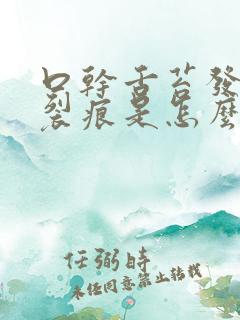 口幹舌苔發
裂痕是怎麼
任弼時
未经同意禁止转载